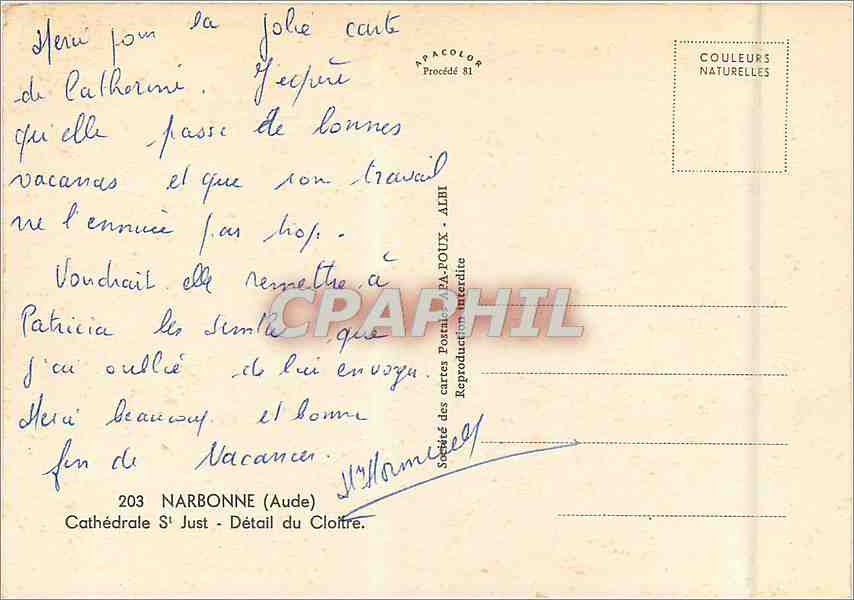 Merci pour la jolie carte
de Catherine. J'espère
qu'elle passe de bonnes
vacances et que son travail
ne l'ennuie pas trop.
Voudrait elle remettre à
Patricia les timbres que
j'ai oublié de lui envoyer.
Merci beaucoup et bonne
fin de Vacances.
203 NARBONNE (Aude)
Cathédrale St Just - Détail du Cloître.
APACOLOR
Procédé 81
Société des cartes Postales APA-POUX - ALBI
Reproduction interdite
COULEURS
NATURELLES
CPAPHIL